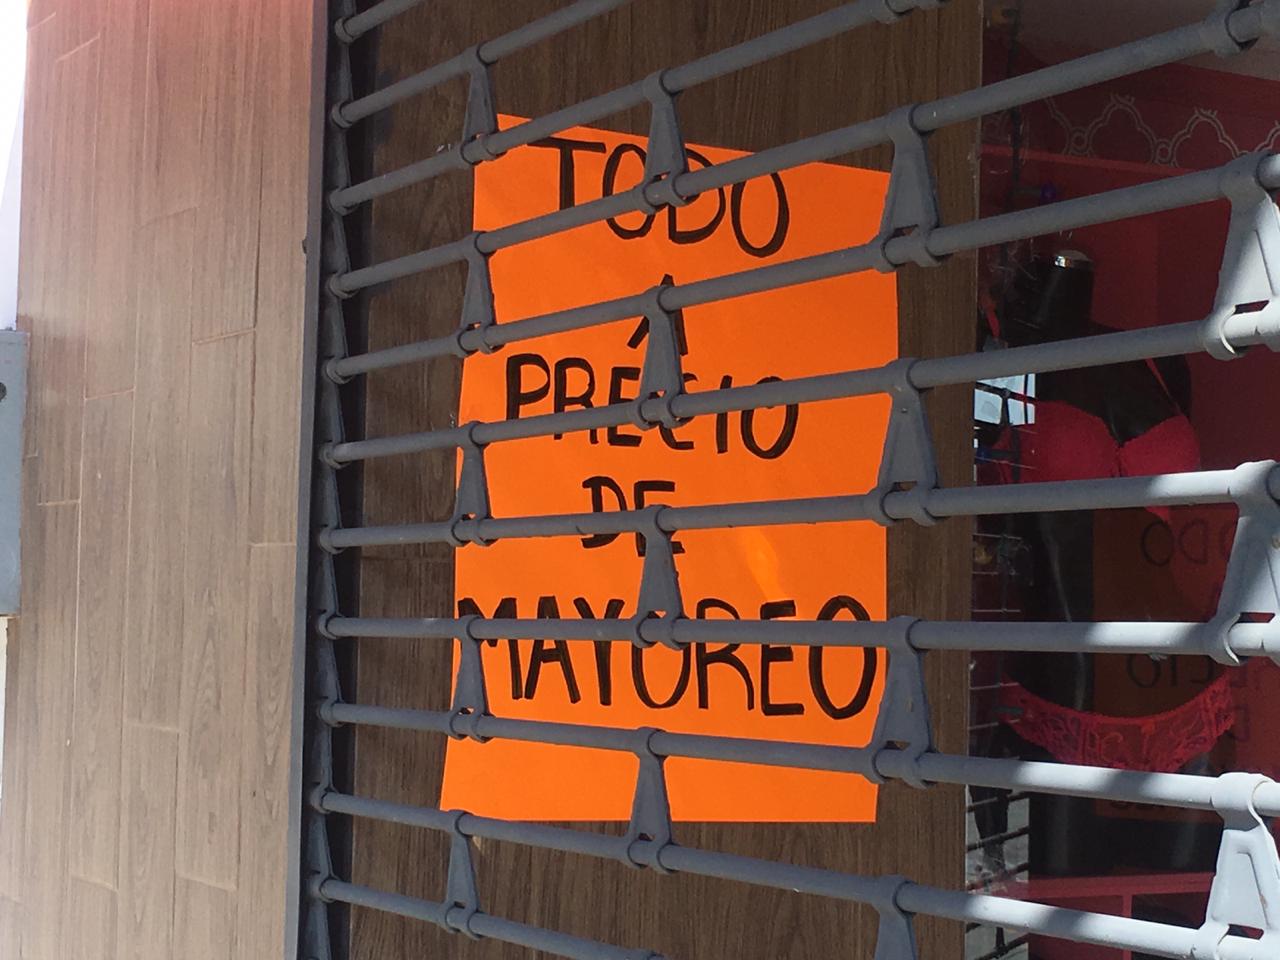 TODO
A
PRECIO
DE
MAYOREO